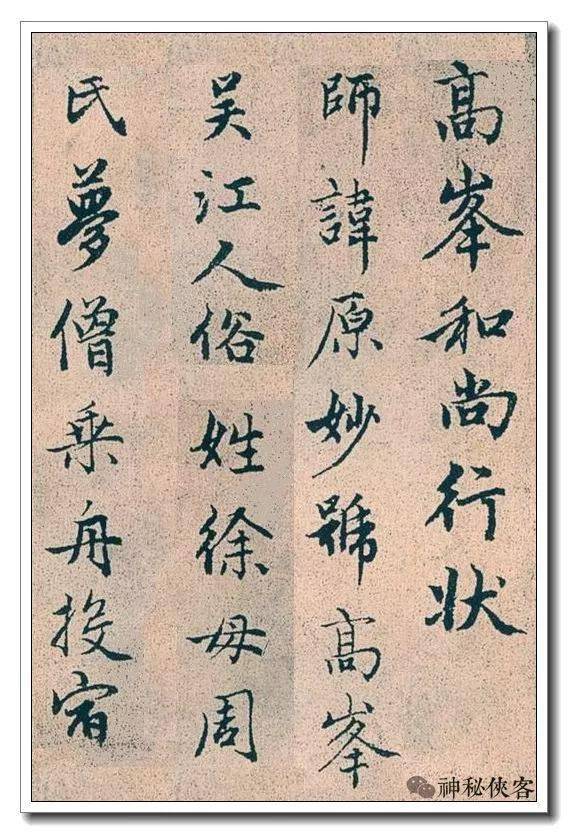 高峯和尚行状
師諱原妙號高峯
吴江人俗姓徐母周
氏夢僧乗舟投宿
神秘俠客